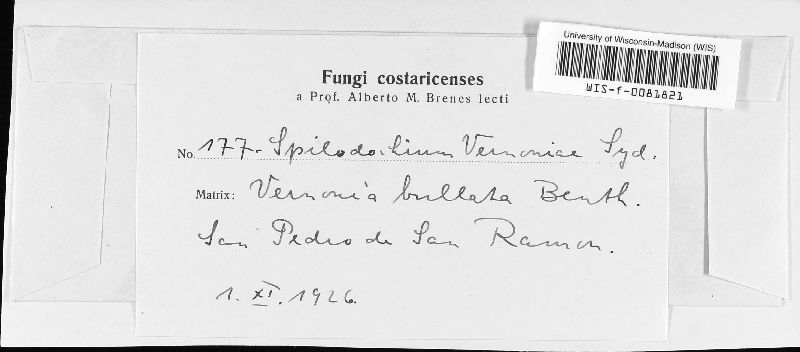 University of Wisconsin-Madison (WIS)
WIS-f-0081821
Fungi costaricenses
a Prof. Alberto M. Brenes lecti
No. 177. Spilodochium Vernoniae Syd.
Matrix: Vernonia bullata Benth.
San Pedro de San Ramon.
1. XI. 1926.